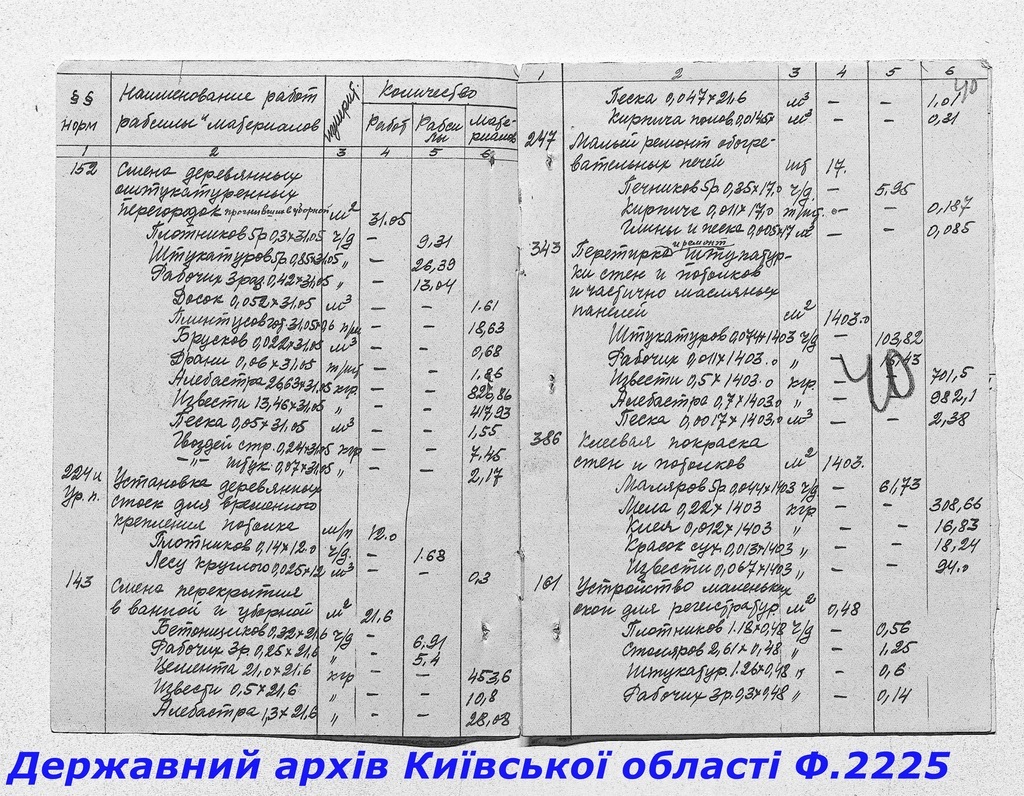 §§ норм
Наименование работ рабсилы и материалов
Количество
Работ
Рабсилы
Материалов
1 2 3 4 5 6
152 Смена деревянных
оштукатуренных
перегородок прогнивших в уборной м² 31.05
Плотников 5р 0,3×31.05 ч/д — 9,31
Штукатуров 5р. 0,85×31.05 " — 26,39
Рабочих 3 раз. 0,42×31.05 " — 13.04
Досок 0,052×31.05 м³ — — 1.61
Плинтусов 31.05×0,6 п/м — — 18,63
Брусков 0,022×31.05 м³ — — 0,68
Драни 0,06×31.05 т/шт — — 1,86
Алебастра 26,63×31.05 кгр. — — 826,86
Извести 13,46×31.05 " — — 417,93
Песка 0,05×31.05 м³ — — 1,55
Гвоздей стр. 0,24×31.05 кгр — — 7.45
—"— штук. 0,07×31.05 " — — 2,17
224 и Ур. п. Установка деревянных
стоек для временного
крепления потолка м/п 12.0
Плотников 0,14×12.0 ч/д. — 1.68
Лесу круглого 0,025×12 м³ — — 0,3
143 Смена перекрытия
в ванной и уборной м² 21,6
Бетонщиков 0,32×21,6 ч/д — 6,91
Рабочих 3р. 0,25×21,6 " — 5,4
Цемента 21,0×21,6 кгр — — 453,6
Извести 0,5×21,6 " — — 10,8
Алебастра 1,3×21,6 " — — 28,08
1 2 3 4 5 6
40
Песка 0,047×21.6 м³ — — 1,01
Кирпича полов. м³ — — 0,31
247 Малый ремонт обогре-
вательных печей шт 17.
Печников 5р. 0,35×17.0 ч/д. — 5,95
Кирпича 0,011×17,0 т/шт. — — 0,187
Глины и песка 0,005×17 м³ — — 0,085
343 Перетирка и ремонт штукатур-
ки стен и потолков
и частично масляных
панелей м² 1403.0
Штукатуров 0,074×1403 ч/д — 103,82
Рабочих 0,011×1403.0 "
Извести 0,5×1403.0 кгр. — — 701,5
Алебастра 0,7×1403.0 " — 982,1
Песка 0,0017×1403.0 м³ — — 2,38
40
386 Клеевая покраска
стен и потолков м² 1403.
Маляров 5р 0,044×1403 ч/д — 61,73
Мела 0,22×1403 кгр — — 308,66
Клея 0,012×1403 " — — 16,83
Красок сух. 0,013×1403 " — — 18,24
Извести 0,067×1403 " — — 94.0
161 Устройство маленьких
окон для регистратур. м² 0,48
Плотников 1.18×0,48 ч/д — 0,56
Столяров 2,61×0,48 " — 1,25
Штукатур. 1.26×0,48 " — 0,6
Рабочих 3р. 0,3×0,48 " — 0,14
Державний архів Київської області Ф.2225